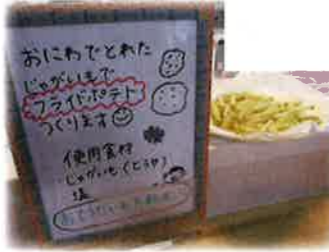 おにわでとれた
じゃがいもで
フライドポテト
つくります
使用食材
じゃがいも(とうや)
塩